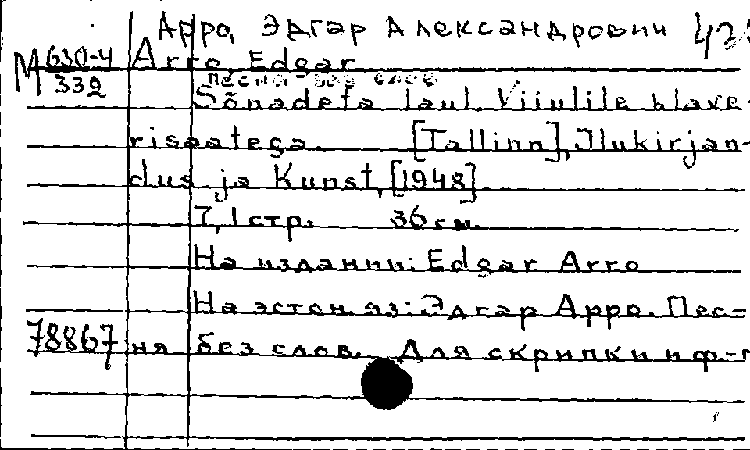 Арро, Эдгар Александрович 423
М 630-4 Arro, Edgar
332 Песня без слов
Sõnadeta laul. Viiulile klave-
risaatega. [Tallinn], Ilukirjan-
dus ja Kunst, [1948].
7, 1 стр. 36 см.
На издании: Edgar Arro
На эстон. яз: Эдгар Арро. Пес=
78867 ня без слов. Для скрипки и ф-п